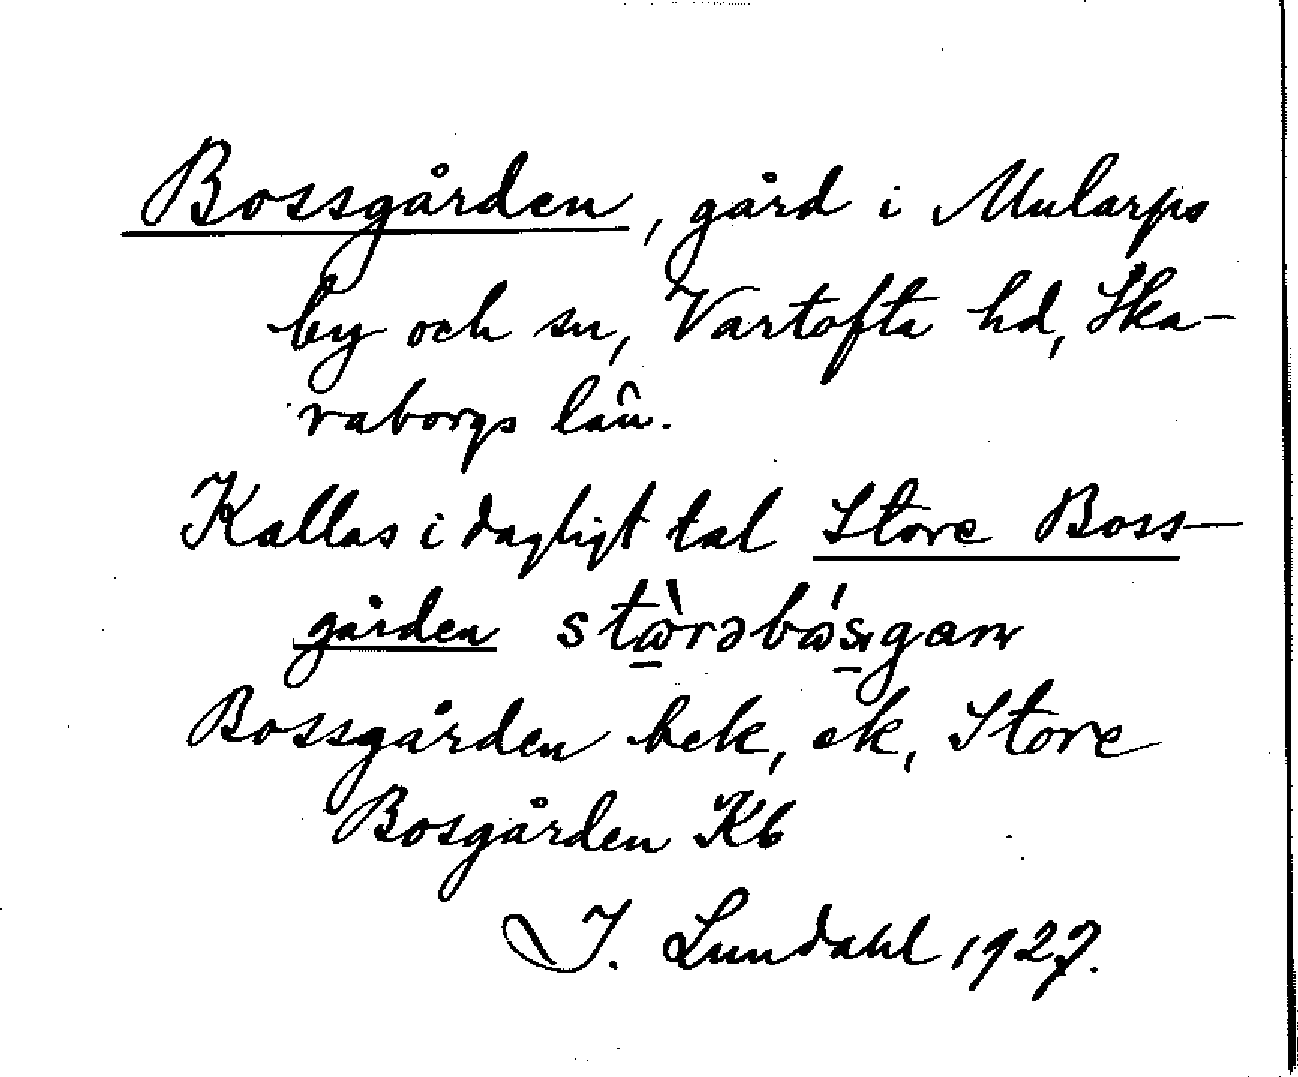 Bossgården, gård i Mularps
by och sn, Vartofta hd, Ska-
raborgs län.
Kallas i dagligt tal Store Boss-
gården
Bossgården bek, ek, Store
Bosgården Kb
I. Lundahl 1927.